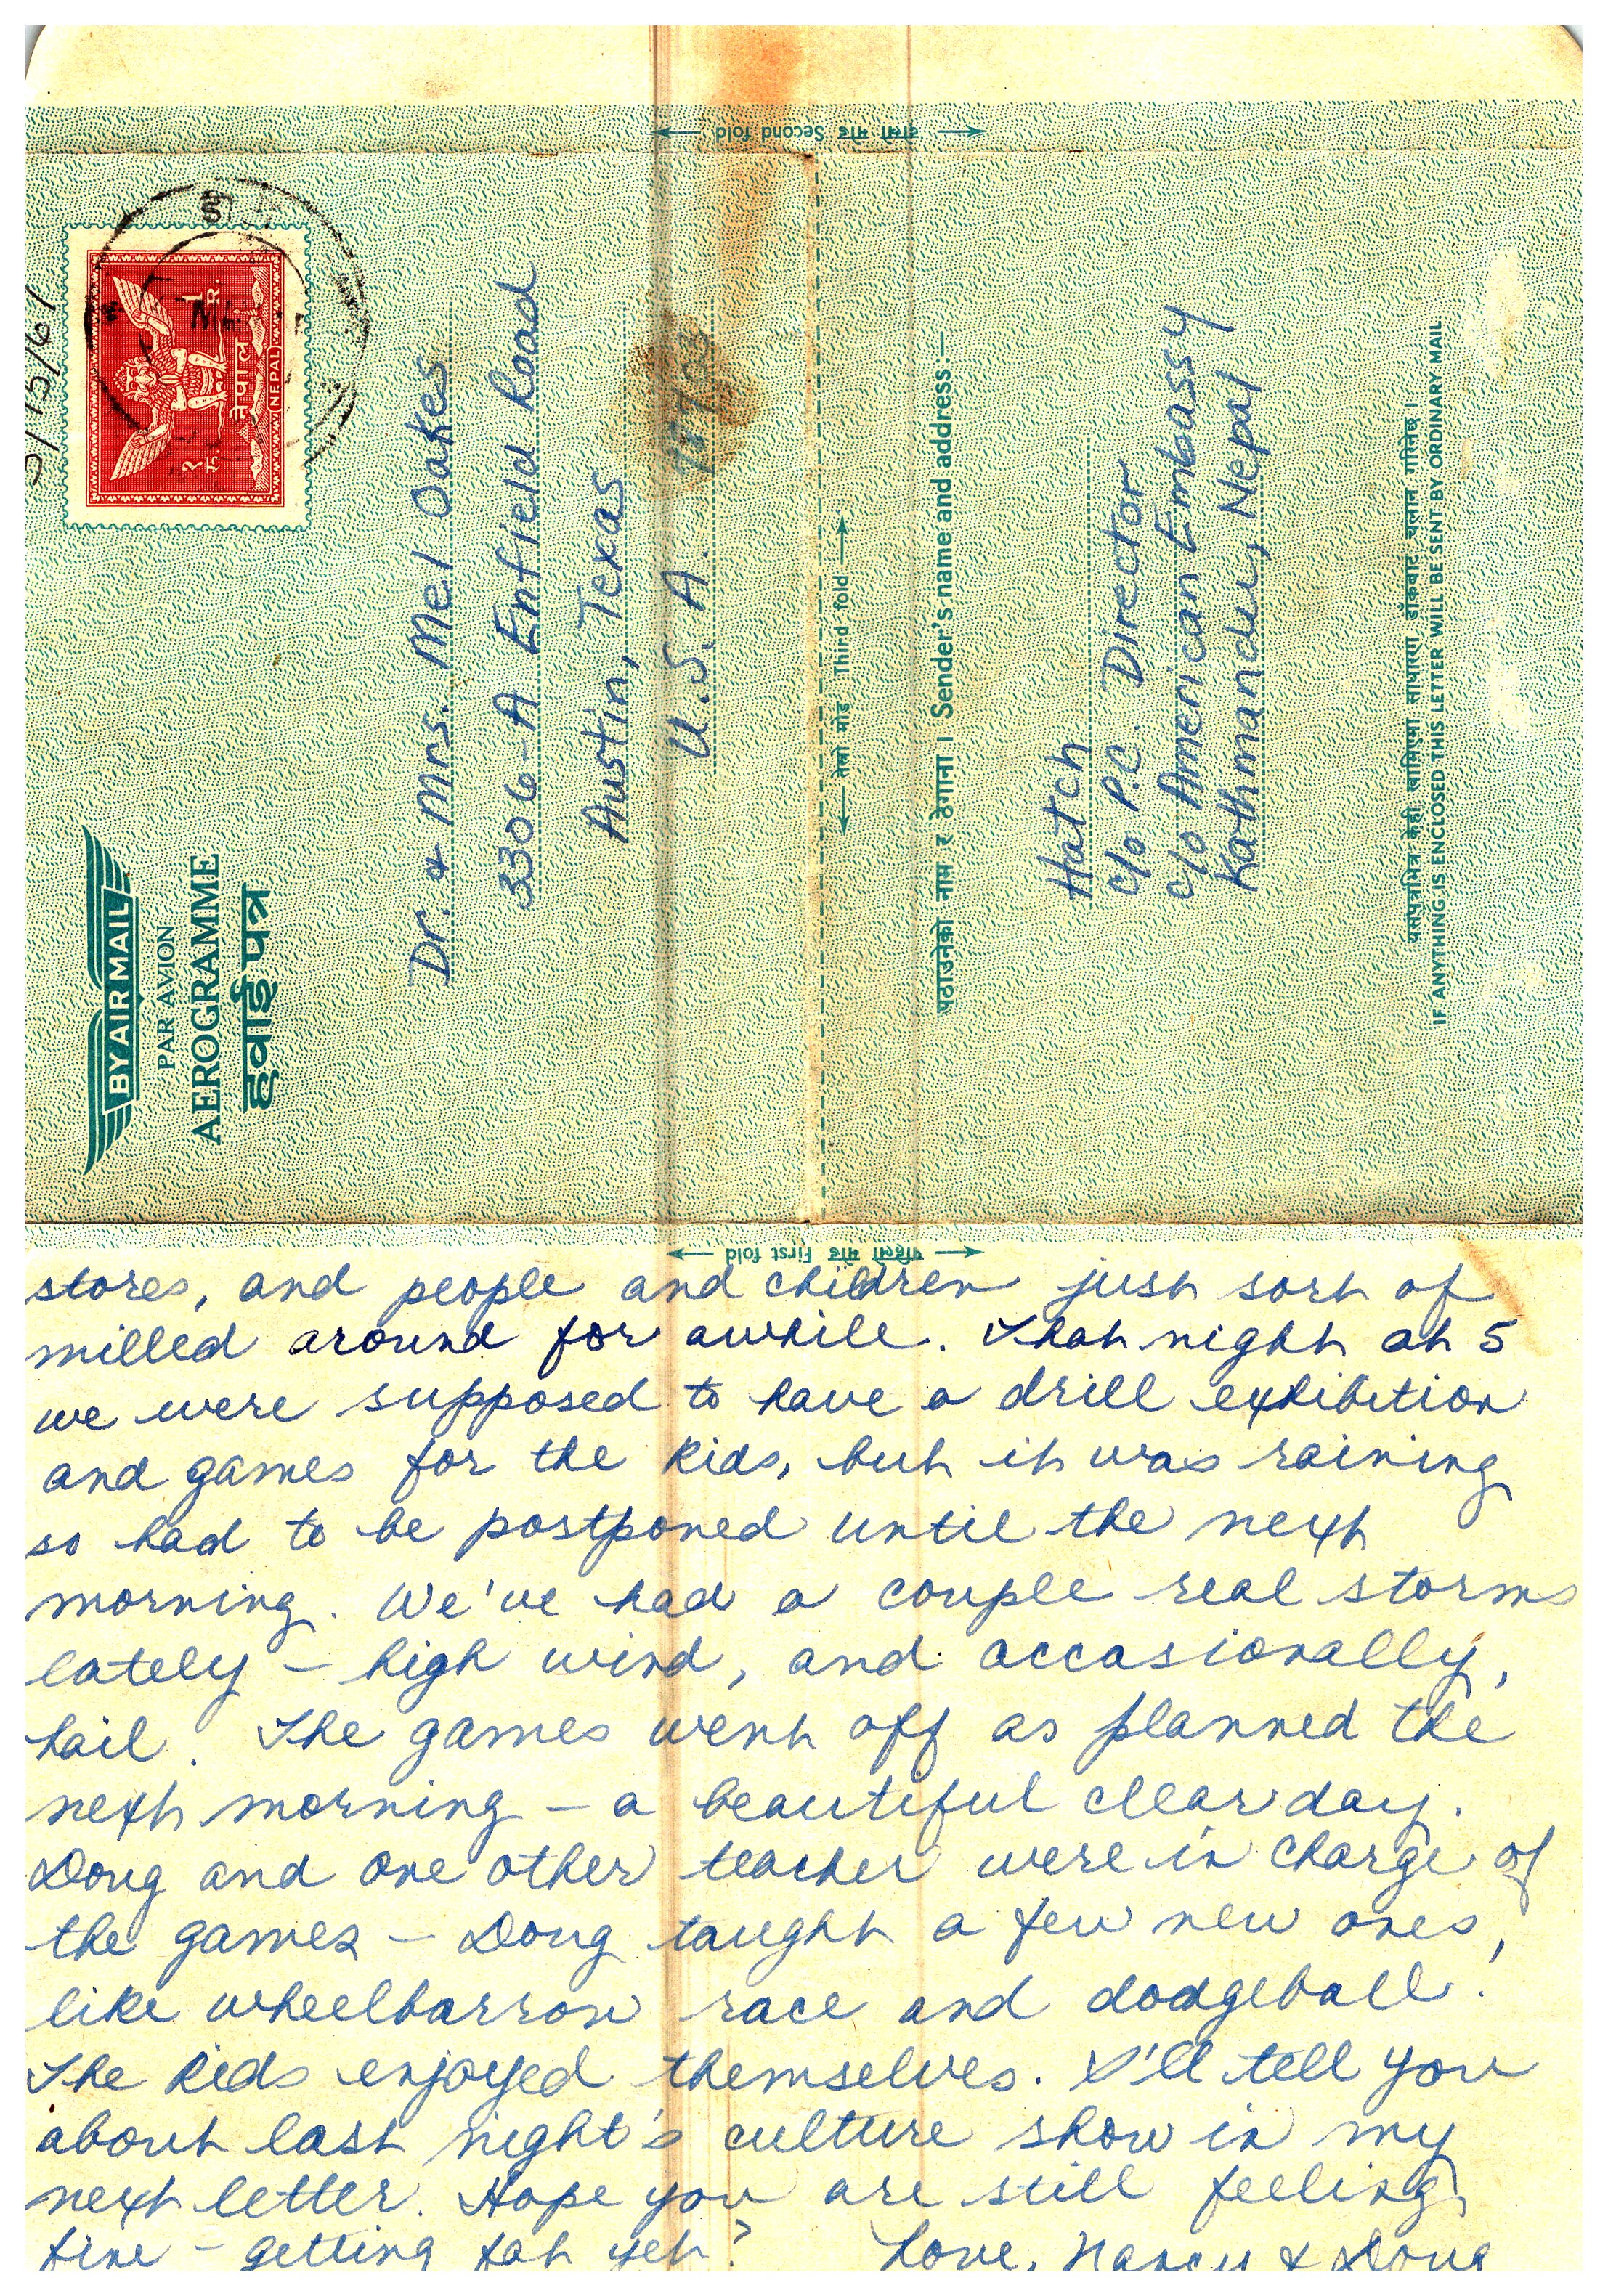 दोस्रो मोड Second fold
5/15/67
१ रु.
1 R.
नेपाल
NEPAL
BY AIR MAIL
PAR AVION
AEROGRAMME
हवाई पत्र
Dr. & Mrs. Mel Oakes
3306-A Enfield Road
Austin, Texas
U.S.A. 78703
तेस्रो मोड Third fold
पठाउनेको नाम र ठेगाना । Sender's name and address:—
Hatch
c/o P.C. Director
c/o American Embassy
Kathmandu, Nepal
यसपत्रभित्र केही खामिएमा साधारण डाँकबाट चलान गरिनेछ ।
IF ANYTHING IS ENCLOSED THIS LETTER WILL BE SENT BY ORDINARY MAIL
पहिलो मोड First fold
stores, and people and children just sort of
milled around for awhile. That night at 5
we were supposed to have a drill exhibition
and games for the kids, but it was raining
so had to be postponed until the next
morning. We've had a couple real storms
lately – high wind, and accasionally,
hail. The games went off as planned the
next morning – a beautiful clear day.
Doug and one other teacher were in charge of
the games – Doug taught a few new ones,
like wheelbarrow race and dodgeball.
The kids enjoyed themselves. I'll tell you
about last night's culture show in my
next letter. Hope you are still feeling
fine – getting fat yet? Love, Nancy & Doug